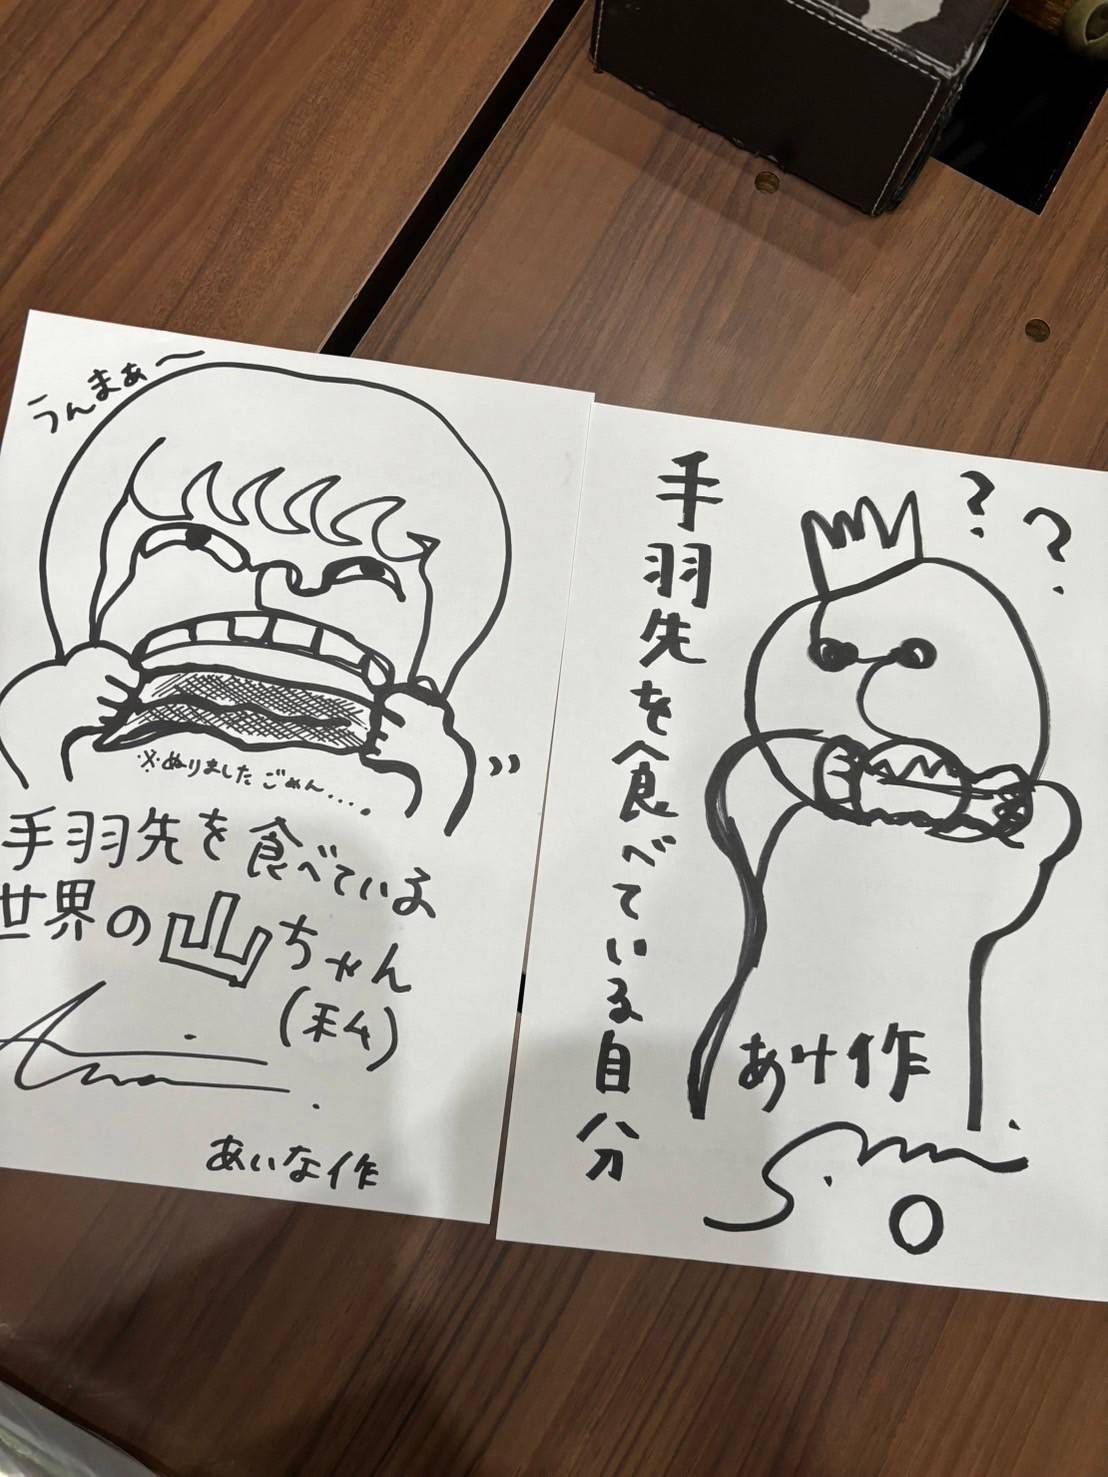 うんまぁ〜
※ぬりました ごめん....。
手羽先を食べている
世界の山ちゃん
(私)
あいな作
? ?
手羽先を食べている自分
あけ作